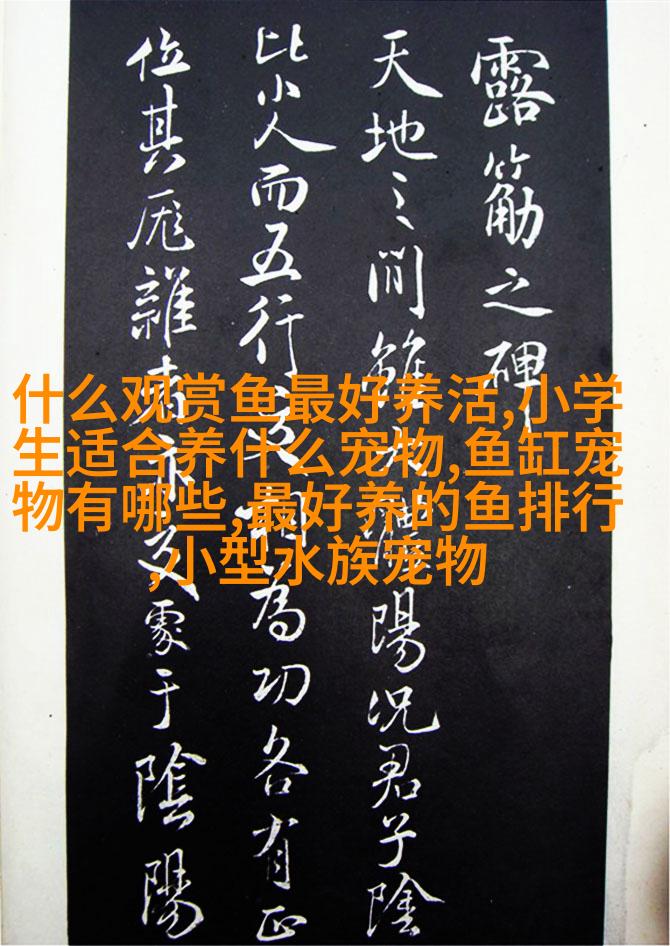 露筋之碑
天地之間雖大體陽況君子陰
比小人而五行為功各有正
位其厖雜者亦處于陰陽
什么观赏鱼最好养活,小学
生适合养什么宠物,鱼缸宠
物有哪些,最好养的鱼排行
,小型水族宠物